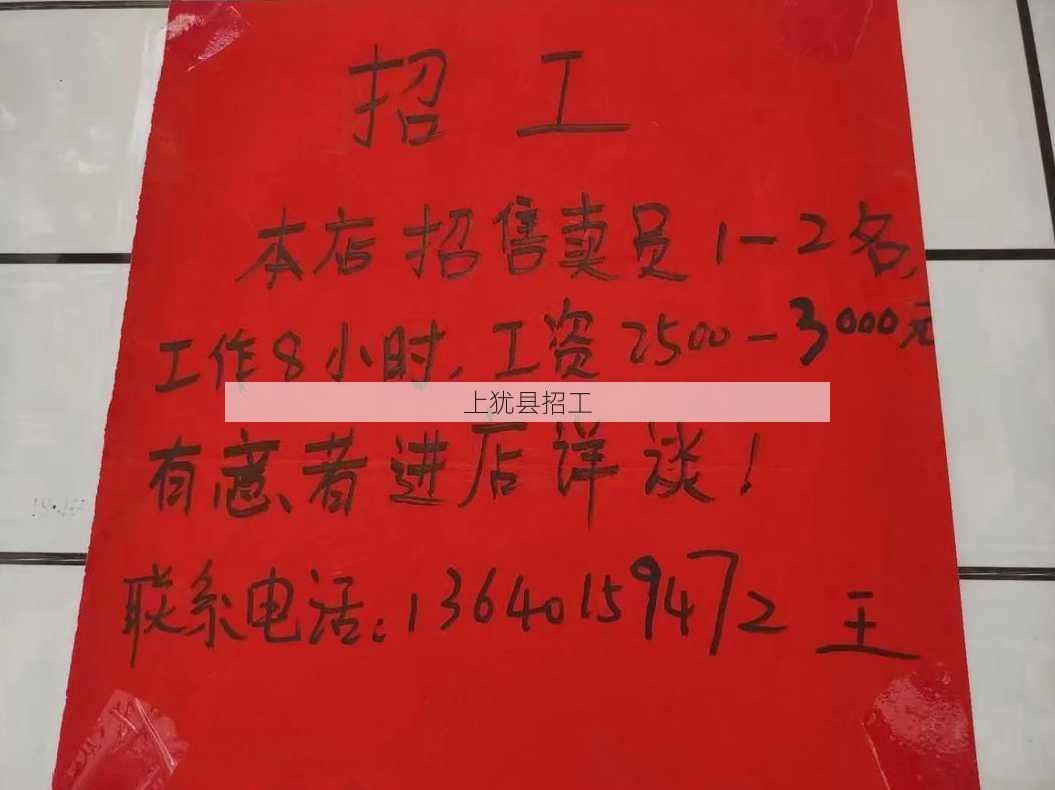 招工
本店招售卖员1-2名,
工作8小时,工资2500-3000元
上犹县招工
有意者进店详谈!
联系电话:13640159472 王